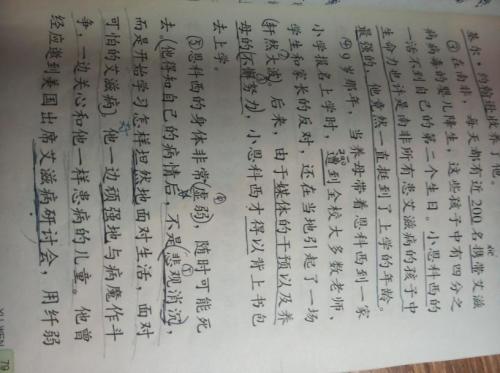 基尔·约翰逊收养 他
③在南非,每天都有近200名携带艾滋
病病毒的婴儿降生,这些孩子中有四分之
一活不到自己的第二个生日。小思科西的
生命力也许是南非所有患艾滋病的孩子中
最强的,他竟然一直挺到了上学的年龄。
④9岁那年,当养母带着思科西到一家
小学报名上学时,遭到全校大多数老师、
学生和家长的反对,还在当地引起了一场
(轩然大波)。后来,由于媒体的干预以及养
母的(不懈努力),小思科西才得以背上书包
去上学。
⑤思科西的身体非常(虚弱),随时可能死
去。(他得知自己的病情后,不是(悲观消沉),
而是开始学习怎样坦然地面对生活,面对
可怕的艾滋病)。他一边顽强地与病魔作斗
争,一边关心和他一样患病的儿童。他曾
经应邀到美国出席艾滋病研讨会,用纤弱
YU WEN 79